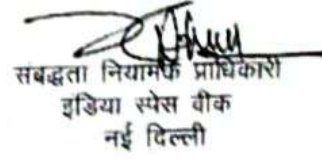 संबद्धता नियामक प्राधिकारी
इंडिया स्पेस वीक
नई दिल्ली